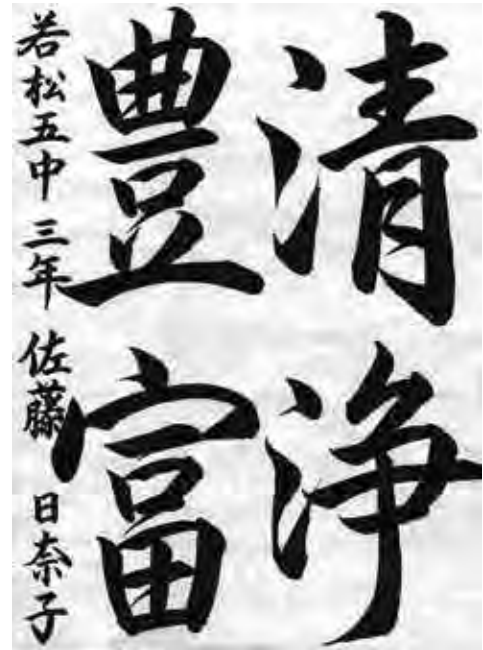 清浄
豊富
若松五中 三年 佐藤 日奈子